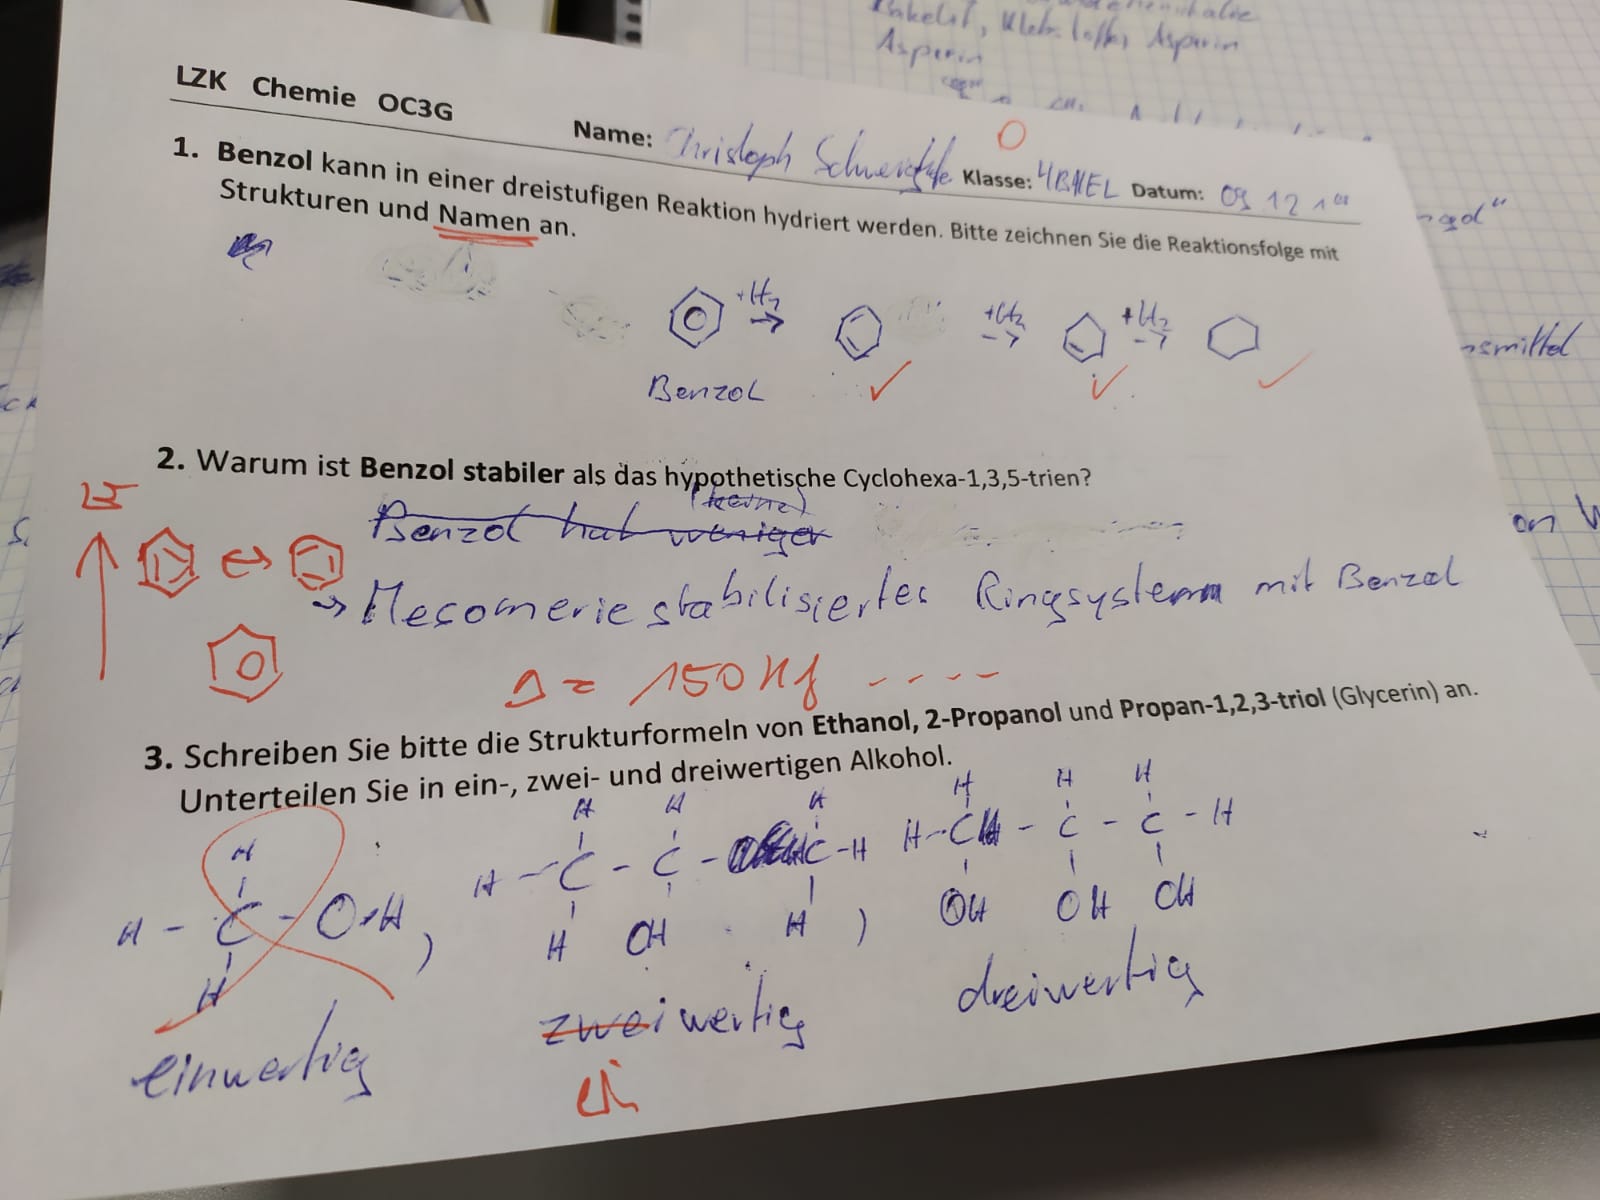 Asperin
Bakelit, Klebstoffe, Asperin
LZK Chemie OC3G
Name: Christoph Klasse: 4BHEL Datum: 09 12
1. Benzol kann in einer dreistufigen Reaktion hydriert werden. Bitte zeichnen Sie die Reaktionsfolge mit
Strukturen und Namen an.
+H2 +H2 +H2
Benzol
2. Warum ist Benzol stabiler als das hypothetische Cyclohexa-1,3,5-trien?
(keine)
Benzol hat weniger
→ Mesomeriestabilisiertes Ringsystem mit Benzol
Δ = 150 KJ - - - -
3. Schreiben Sie bitte die Strukturformeln von Ethanol, 2-Propanol und Propan-1,2,3-triol (Glycerin) an.
Unterteilen Sie in ein-, zwei- und dreiwertigen Alkohol.
H H H H H H H
H - C - O-H , H - C - C - C - H H - C - C - C - H
H H OH H ) OH OH OH
einwertig zweiwertig dreiwertig
ein